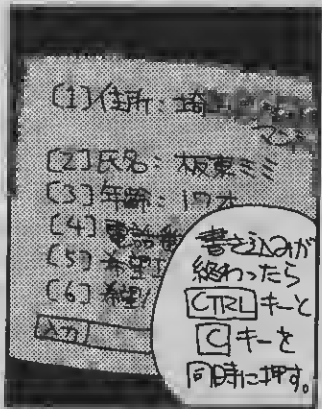 [1]住所:埼
マン
[2]氏名:板東ミミ
[3]年齢:17才
[4]電話番
[5]希望
[6]希望
入力
書き込みが
終わったら
CTRLキーと
Cキーを
同時に押す。